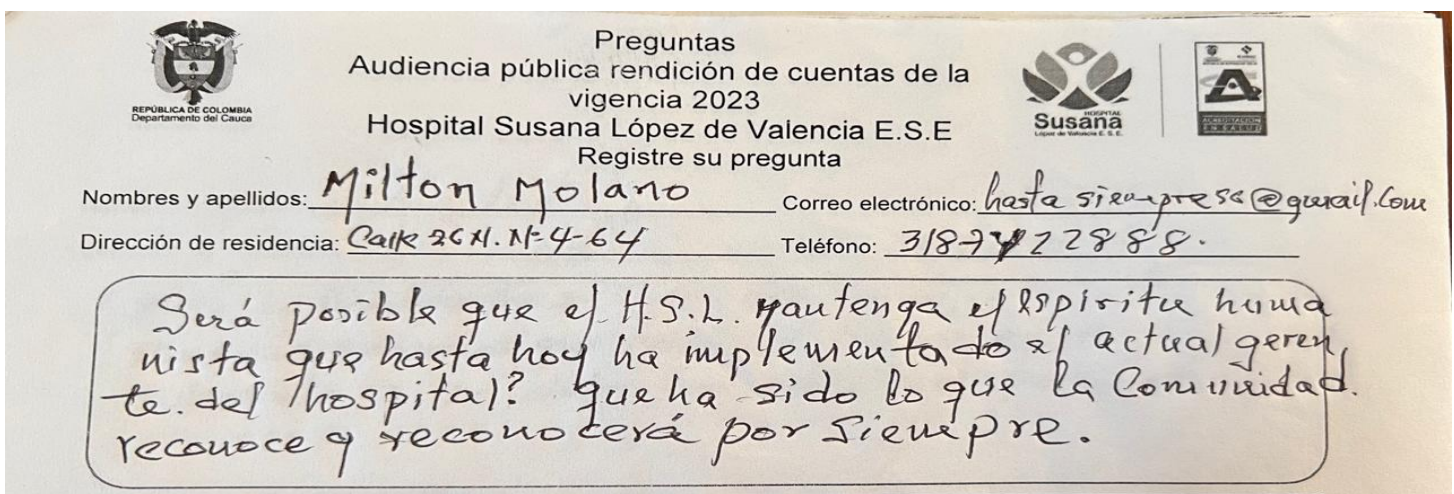 REPÚBLICA DE COLOMBIA
Departamento del Cauca
Preguntas
Audiencia pública rendición de cuentas de la
vigencia 2023
Hospital Susana López de Valencia E.S.E
Registre su pregunta
HOSPITAL
Susana
López de Valencia E. S. E.
ACREDITACIÓN
EN SALUD
Nombres y apellidos: Milton Molano Correo electrónico: hasta siempre @gmail.com
Dirección de residencia: Calle 26N. Nº 4-64 Teléfono:
Será posible que el H.S.L. mantenga el espíritu huma
nista que hasta hoy ha implementado el actual geren
te. del hospital? que ha sido lo que la Comunidad.
reconoce y reconocerá por siempre.